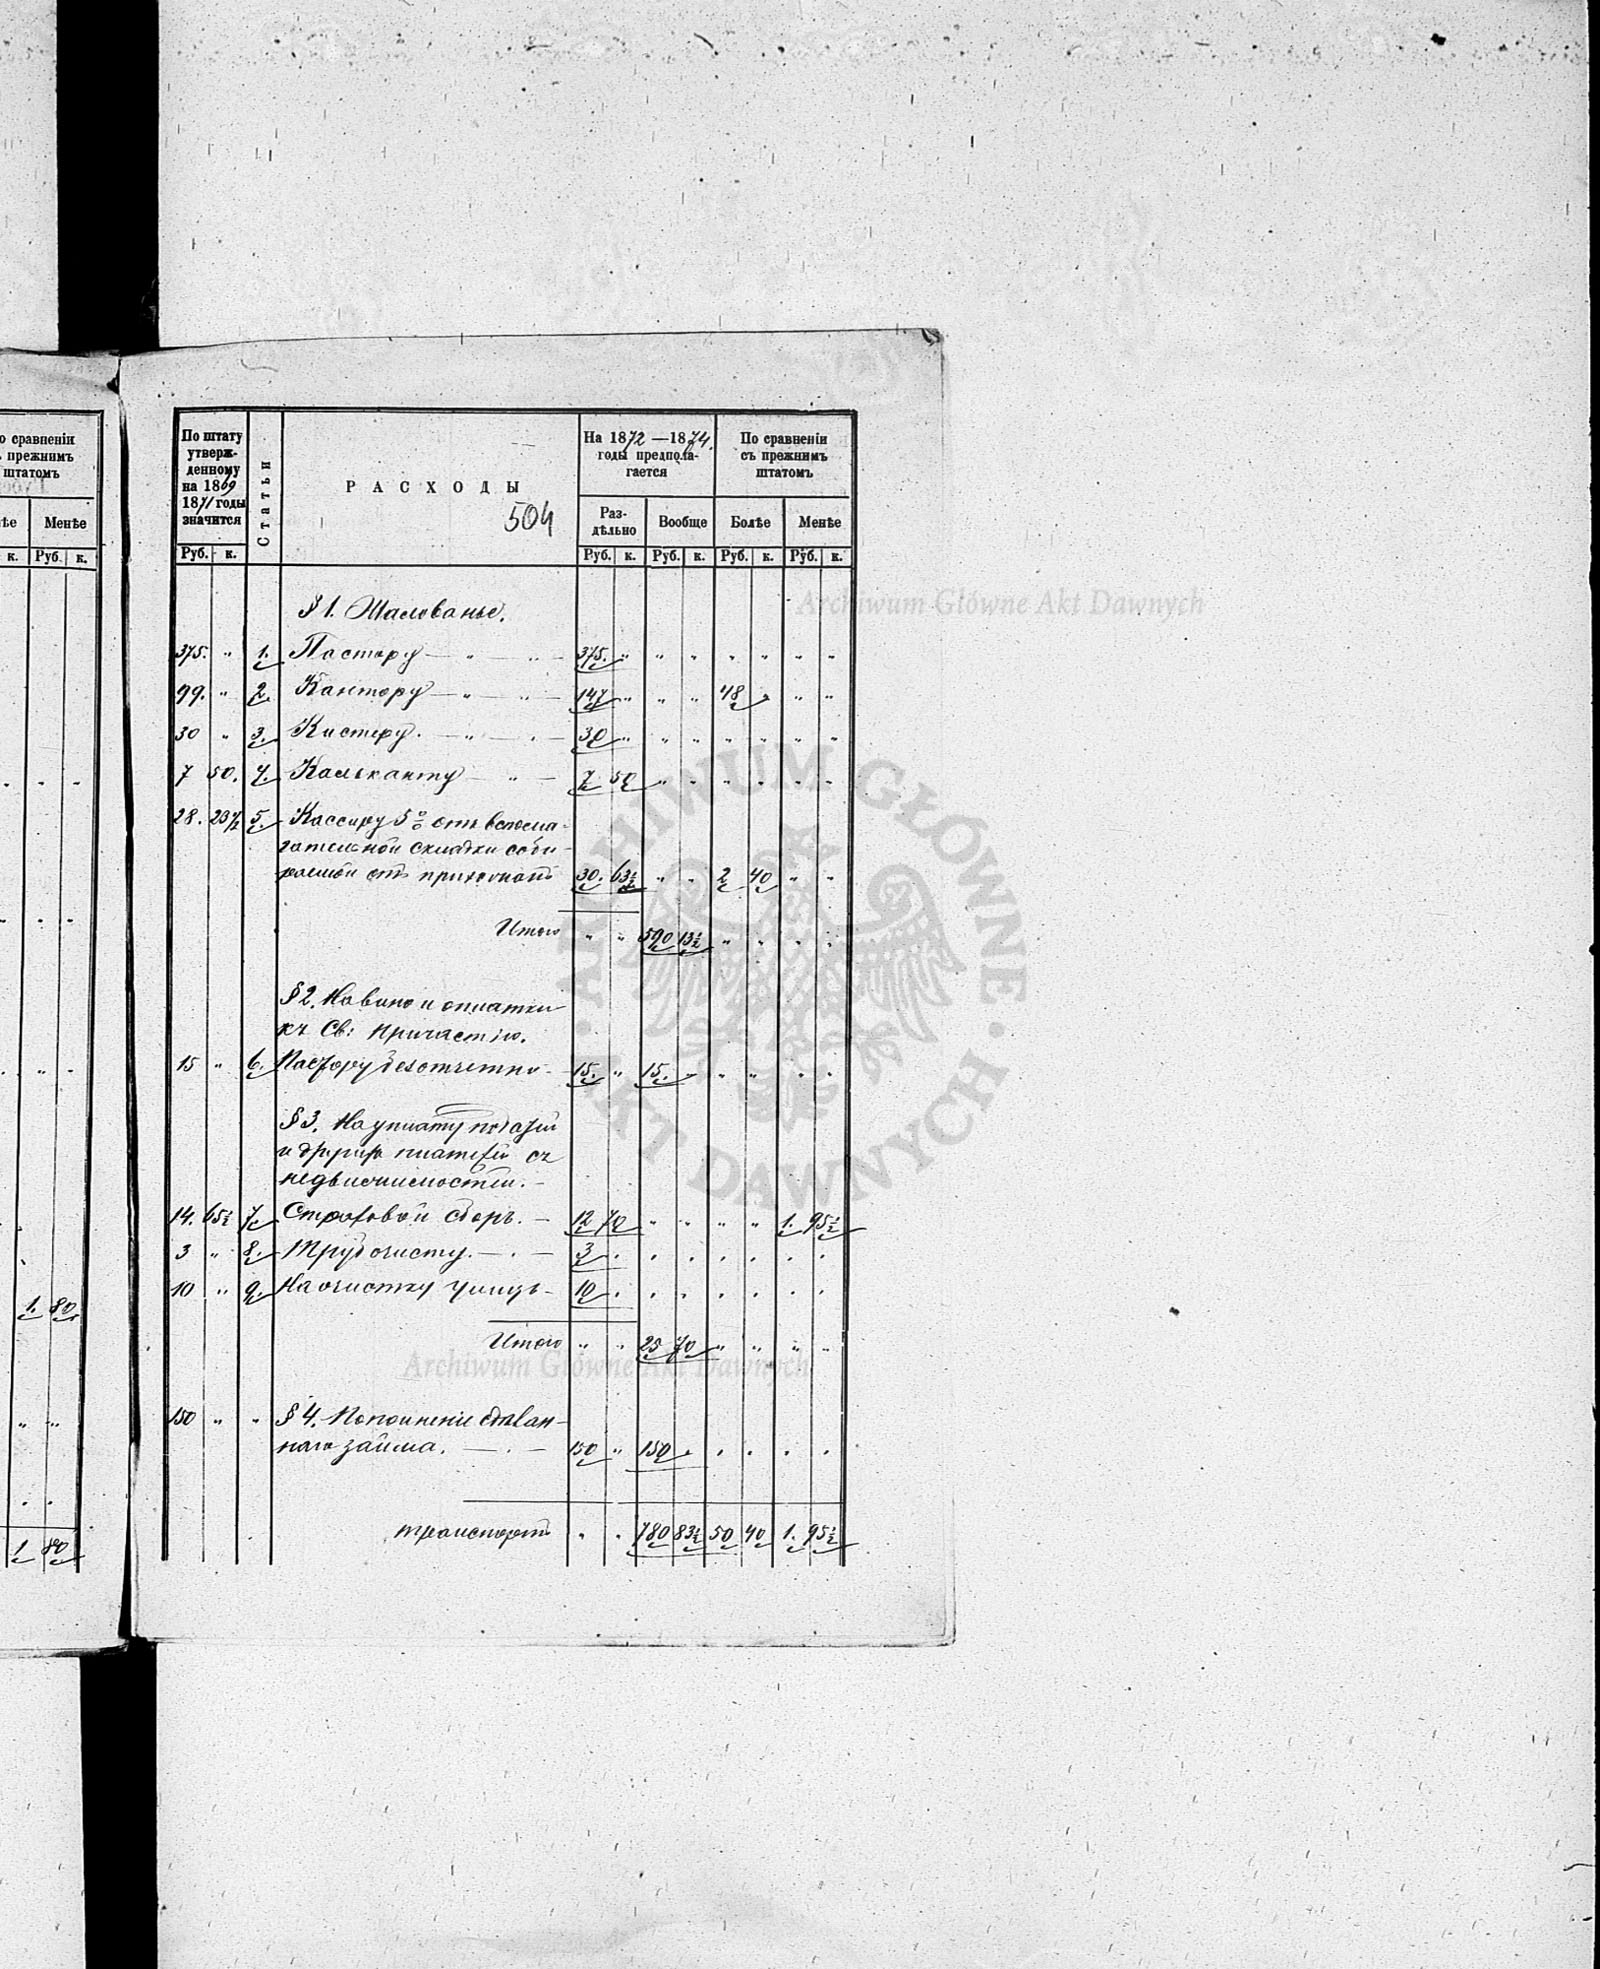 о сравненіи
ъ прежнимъ
штатомъ
ѣе Менѣе
к. Руб. к.
1. 80
1 80
По штату утверж- денному на 1869 1871 годы значится
Статьи
РАСХОДЫ
504
На 1872—1874. годы предпола- гается
По сравненіи съ прежнимъ штатомъ
Раз- дѣльно Вообще Болѣе Менѣе
Руб. к. Руб. к. Руб. к. Руб. к. Руб. к.
§ 1. Жалованье.
375. " 1. Пастору — " — " — 375. " " " " " " "
99. " 2. Кантору — " — " — 147 " " " 48 " " "
30 " 3. Кистеру. — " — " — 30 " " " " " " "
7 50. 4. Кальканту — " — 7 50 " " " " " "
28. 23½ 5. Кассиру 5% отъ вспома-
гательной складки соби-
раемой отъ прихожанъ 30. 63½ " " 2 40 " "
Итого " " 590 13½ " " " "
§ 2. На вино и оплатки
къ Св: Причастію.
15 " 6. Пастору безотчетно - 15. " 15. " " " " "
§ 3. На уплату податей
и другихъ платежей съ
недвижимостей. -
14. 65½ 7. Страховой сборъ. — 12 70 " " " " 1. 95½
3 " 8. Трубочисту. — . — 3 . . . . . . .
10 " 9. На очистку улицъ - 10 . . . . . . .
Итого " " 25 70 " " " "
150 " " § 4. Пополненіе
наго займа. — . — 150 " 150 . . . . .
Транспортъ . . 780 83½ 50 40 1. 95½
Archiwum Główne Akt Dawnych
ARCHIWUM GŁÓWNE · AKT DAWNYCH ·
Archiwum Główne Akt Dawnych